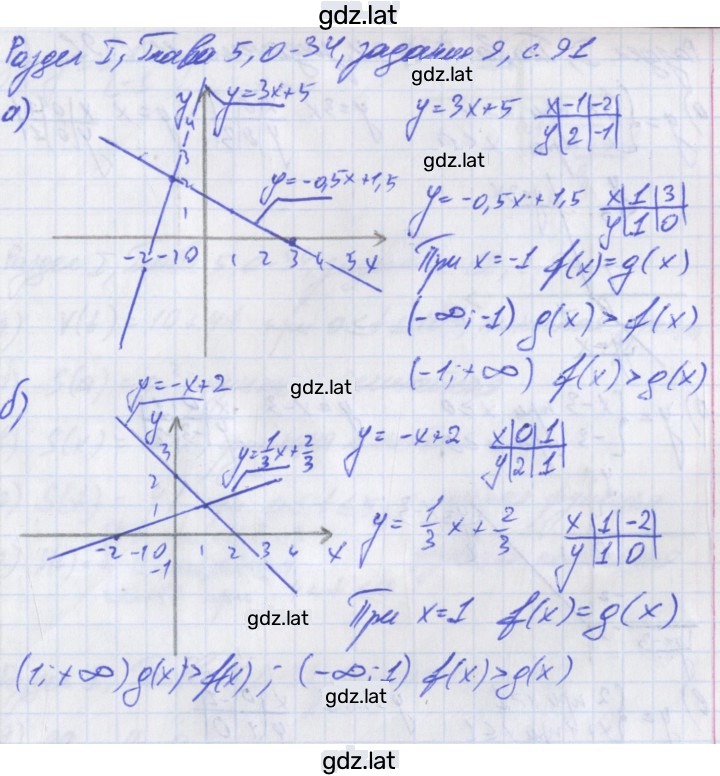 gdz.lat
Раздел I, Глава 5, О-34, задания 9, с. 91
gdz.lat
а)
y
y=3x+5
y=3x+5 x -1 -2
y 2 -1
4
3
2
1
gdz.lat
y=-0,5x+1,5
y=-0,5x+1,5 x 1 3
y 1 0
-2 -1 0 1 2 3 4 5 x
При x=-1 f(x)=g(x)
(-∞;-1) g(x)>f(x)
(-1;+∞) f(x)>g(x)
gdz.lat
б)
y=-x+2
y
y=-x+2 x 0 1
y 2 1
3
2
1
y=1/3x+2/3
y=1/3x+2/3 x 1 -2
y 1 0
-2 -1 0 1 2 3 4 x
-1
gdz.lat
При x=1 f(x)=g(x)
(1;+∞) g(x)>f(x) ; (-∞;1) f(x)>g(x)
gdz.lat
gdz.lat